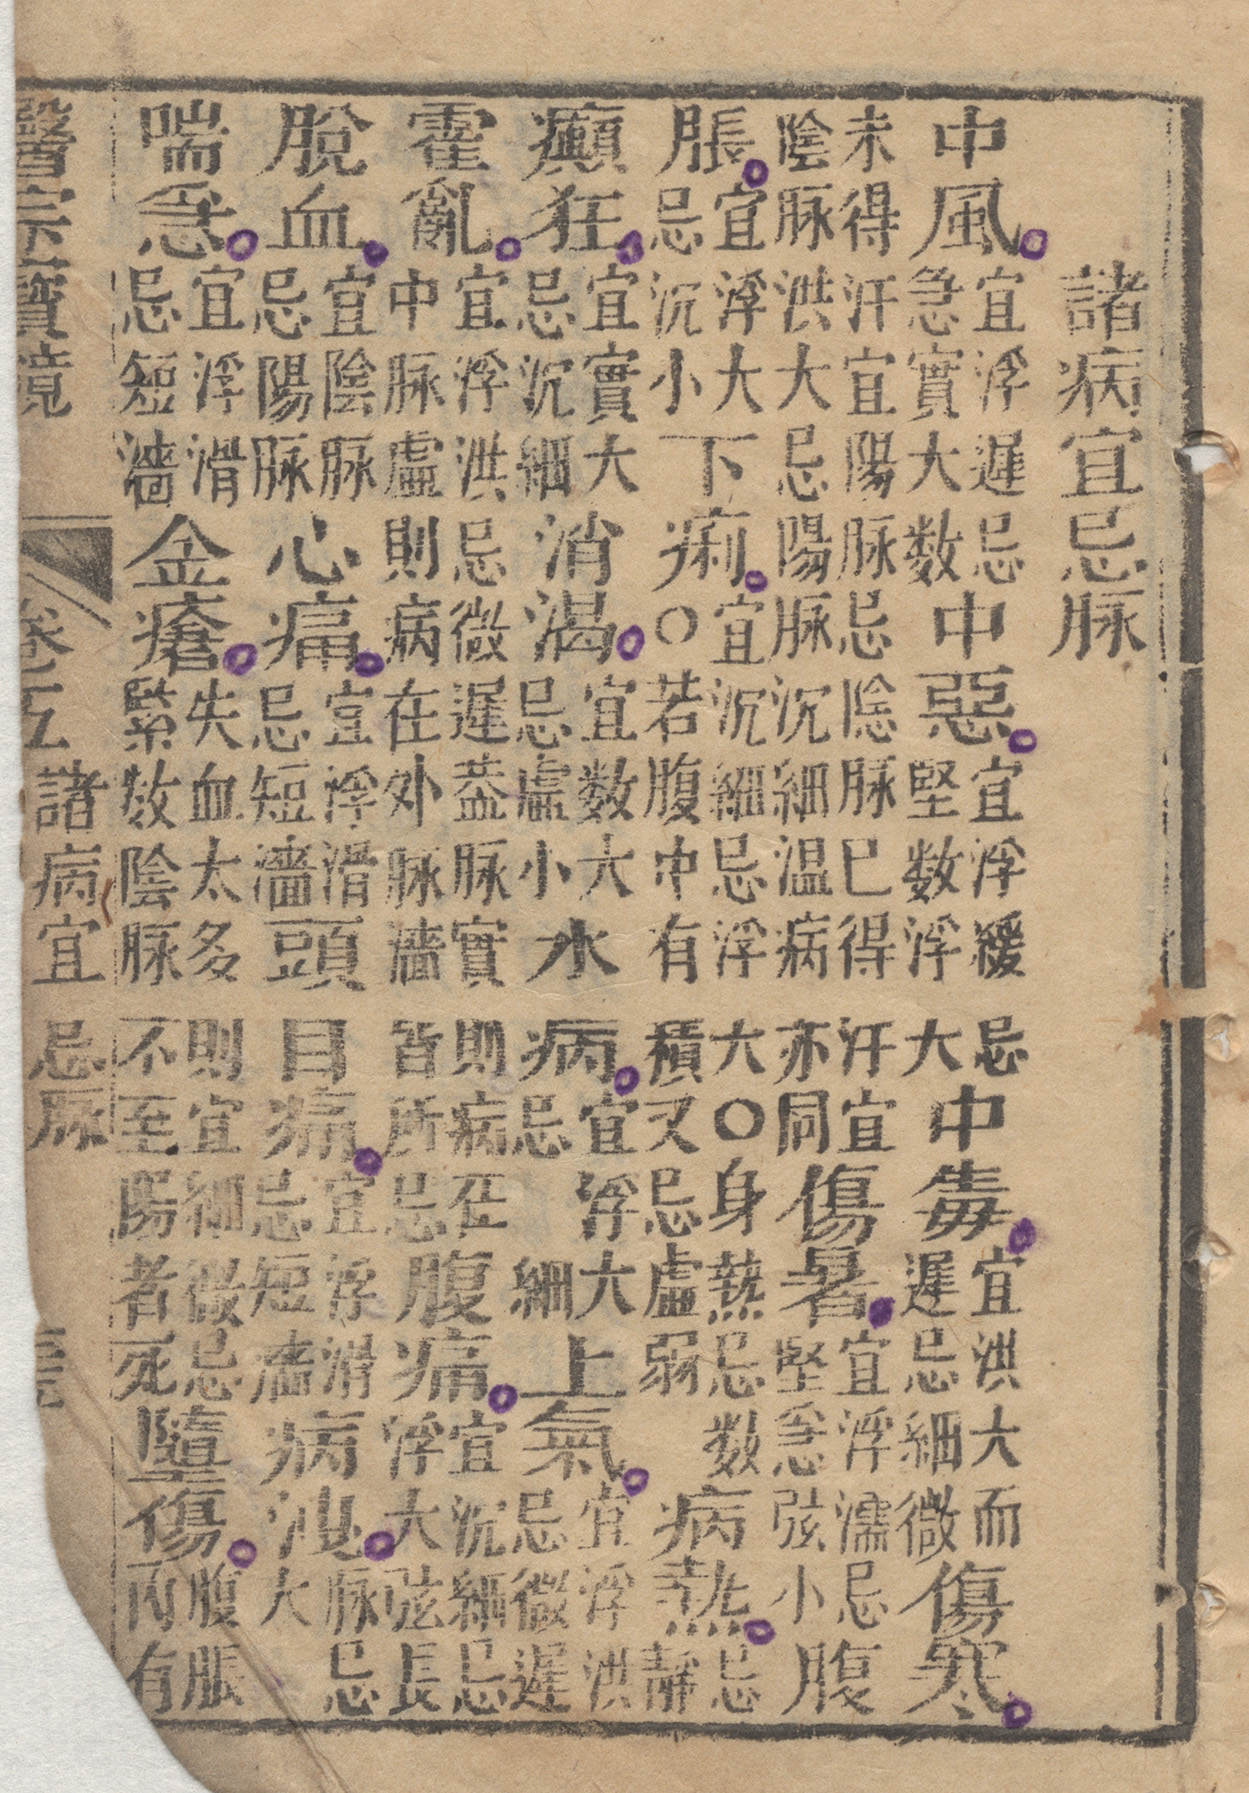 諸病宜忌脉
中風宜浮遲忌急實大数中惡宜浮緩忌堅数浮大中毒宜洪大而遲忌細微傷寒
未得汗宜陽脉忌陰脉已得汗宜陰脉洪大忌陽脉沉細温病亦同傷暑宜浮濡忌堅急弦小腹
脹宜浮大忌沉小下痢宜沉細忌浮大〇身熱忌数〇若腹中有積又忌虛弱病熱忌靜
癲狂宜實大忌沉細消渴宜数大忌虛小水病宜浮大忌細上氣宜浮洪忌微遲
霍亂宜浮洪忌微遲葢脉實則病在中脉虛則病在外脉濇皆所忌腹痛宜沉細忌浮大弦長
脫血宜陰脉忌陽脉心痛宜浮滑忌短濇頭目痛宜浮滑忌短濇病洩脉忌大
喘急宜浮滑忌短濇金瘡失血太多則宜細微忌緊数陰脉不至陽者死墮傷腹脹丙有
醫宗寶鏡 卷五 諸病宜忌脉